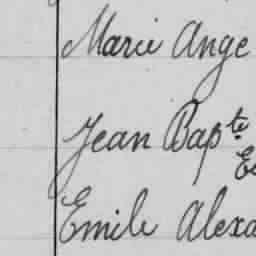 Marie Ange
Jean Bapte
Emile Alexa